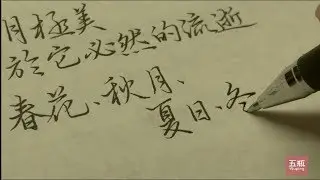 月極美
於它必然的流逝
春花、秋月、
夏日、冬
五瓶